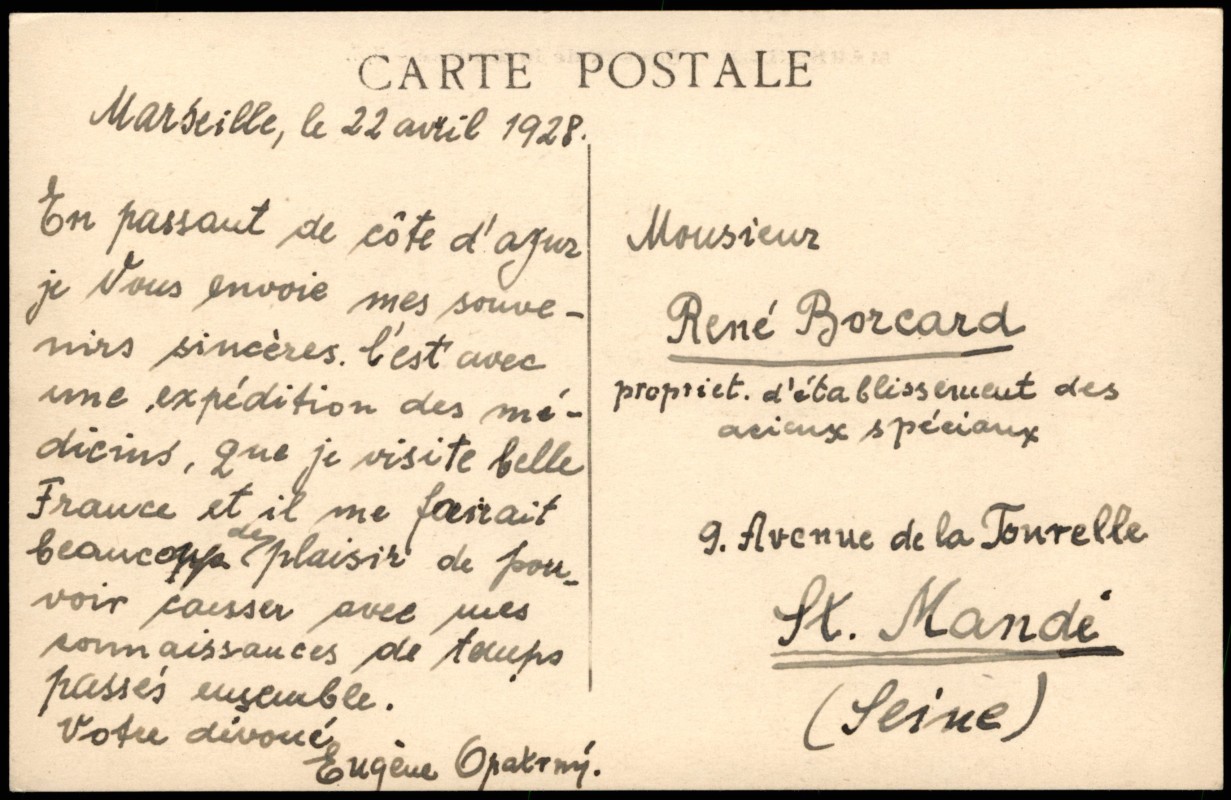 CARTE POSTALE
Marseille, le 22 avril 1928.
En passant de côte d'azur
je Vous envoie mes souve-
nirs sincères. C'est avec
une expédition des mé-
dicins, que je visite belle
France et il me fairait
beaucoup de plaisir de pou-
voir causser avec mes
connaissances de temps
passés ensemble.
Votre dévoué
Eugène Opatrný.
Monsieur
René Borcard
propriet. d'établissement des
acieux spéciaux
9. Avenue de la Tourelle
St. Mandé
(Seine)